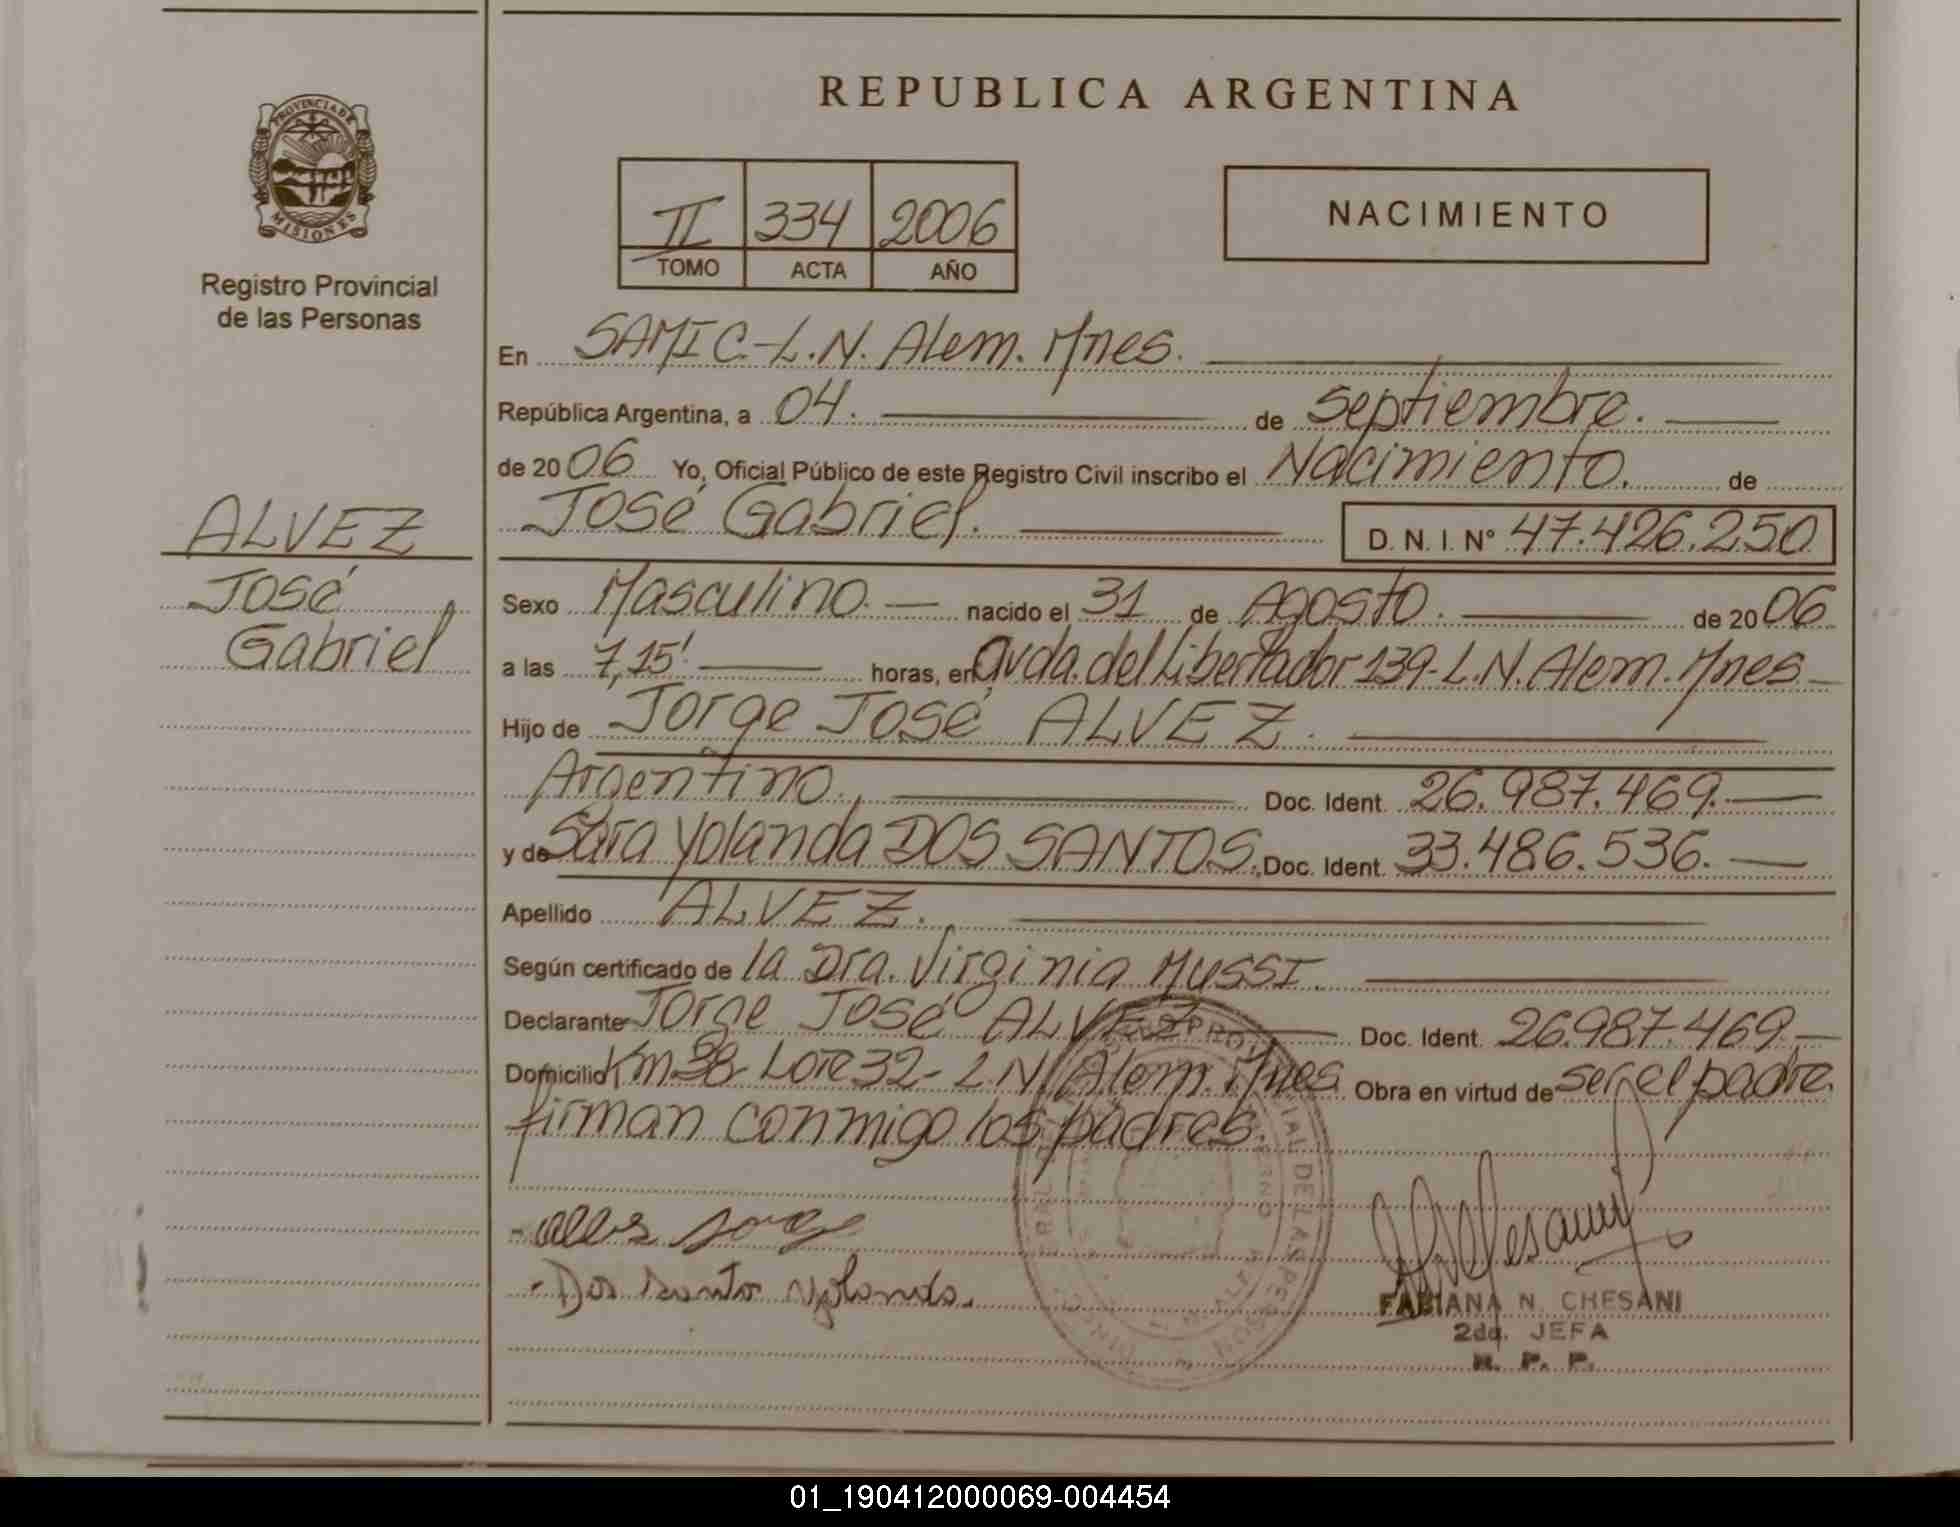 REPUBLICA ARGENTINA
PROVINCIA DE
MISIONES
Registro Provincial
de las Personas
II 334 2006
TOMO ACTA AÑO
NACIMIENTO
En SAMIC.-L.N. Alem. Mnes.
República Argentina, a 04. de Septiembre.
de 2006 Yo, Oficial Público de este Registro Civil inscribo el Nacimiento. de
José Gabriel. D. N. I. N° 47.426.250
ALVEZ
José
Gabriel
Sexo Masculino. nacido el 31 de Agosto. de 2006
a las 7,15' horas, en Avda. del Libertador 139-L.N. Alem. Mnes
Hijo de Jorge José ALVEZ.
Argentino. Doc. Ident. 26.987.469.
y de Sara Yolanda DOS SANTOS. Doc. Ident. 33.486.536.
Apellido ALVEZ.
Según certificado de la Dra. Virginia MUSSI.
Declarante Jorge José ALVEZ Doc. Ident. 26.987.469.
Domicilio Km 38-Lote 32-L.N. Alem. Mnes. Obra en virtud de ser el padre
firman conmigo los padres.
- Dos Santos Yolanda.
FABIANA N. CHESANI
2da. JEFA
R. P. P.
01_190412000069-004454